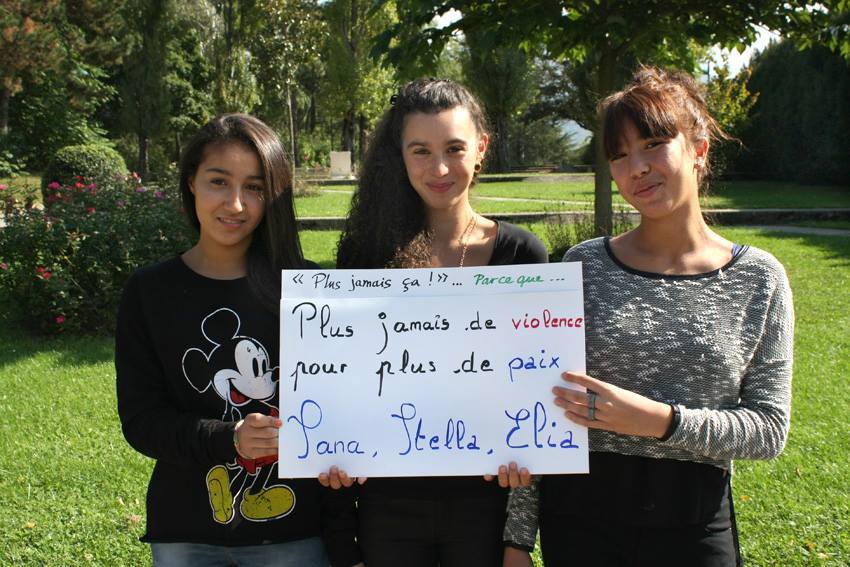 « Plus jamais ça ! » ... Parce que ...
Plus jamais de violence
pour plus de paix
Sana, Stella, Elia